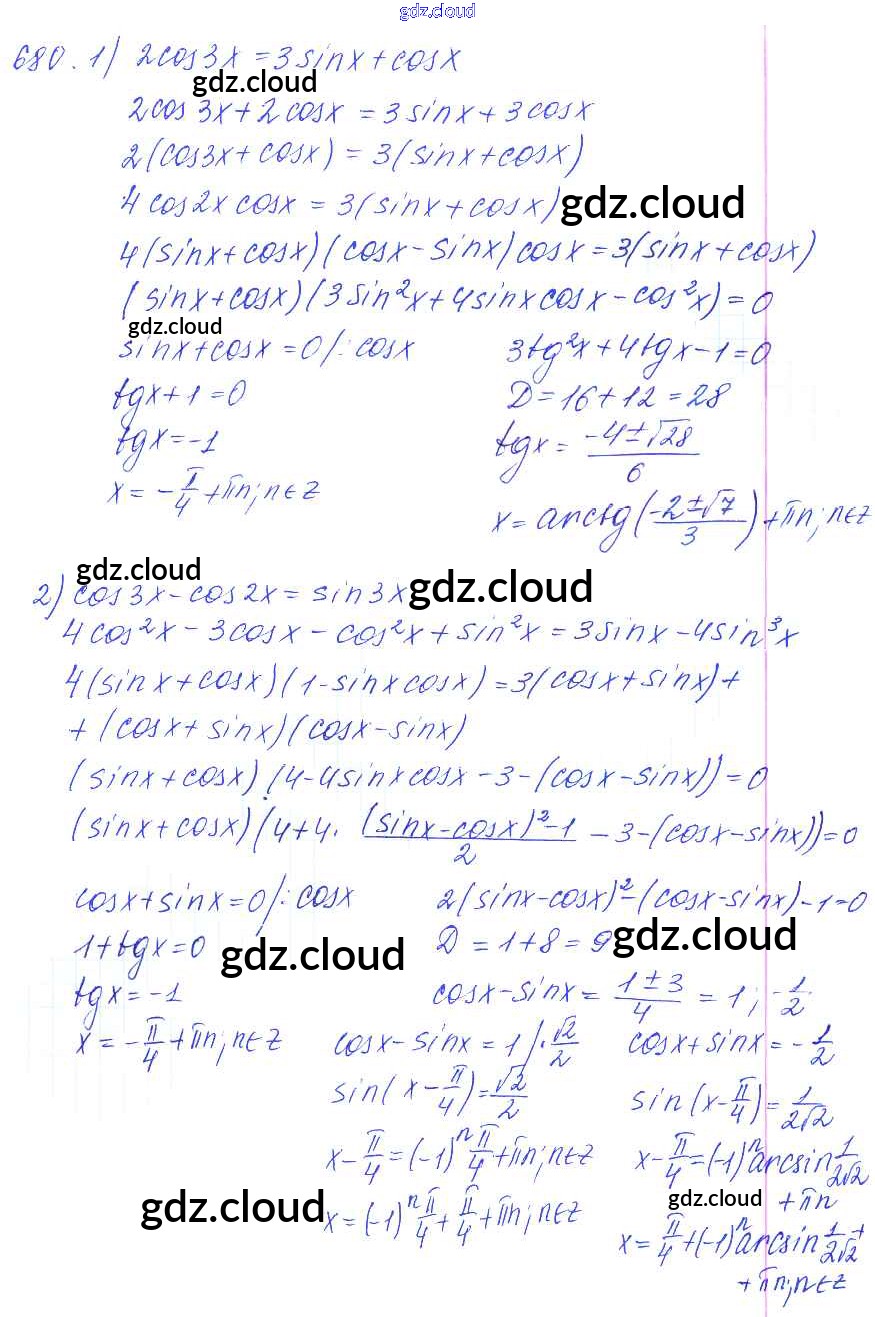 gdz.cloud
680. 1) 2cos3x = 3sinx + cosx
gdz.cloud
2cos3x + 2cosx = 3sinx + 3cosx
2(cos3x + cosx) = 3(sinx + cosx)
4cos2x cosx = 3(sinx + cosx) gdz.cloud
4(sinx + cosx)(cosx - sinx)cosx = 3(sinx + cosx)
(sinx + cosx)(3sin²x + 4sinxcosx - cos²x) = 0
gdz.cloud
sinx + cosx = 0 /: cosx
tgx + 1 = 0
tgx = -1
x = -π/4 + πn; n∈Z
3tg²x + 4tgx - 1 = 0
D = 16 + 12 = 28
tgx = (-4±√28)/6
x = arctg((-2±√7)/3) + πn; n∈Z
gdz.cloud
2) cos3x - cos2x = sin3x gdz.cloud
4cos²x - 3cosx - cos²x + sin²x = 3sinx - 4sin³x
4(sinx + cosx)(1 - sinxcosx) = 3(cosx + sinx) +
+ (cosx + sinx)(cosx - sinx)
(sinx + cosx)(4 - 4sinxcosx - 3 - (cosx - sinx)) = 0
(sinx + cosx)(4 + 4· ((sinx - cosx)² - 1)/2 - 3 - (cosx - sinx)) = 0
cosx + sinx = 0 /: cosx
1 + tgx = 0
tgx = -1
x = -π/4 + πn; n∈Z
gdz.cloud
2(sinx - cosx)² - (cosx - sinx) - 1 = 0
D = 1 + 8 = 9 gdz.cloud
cosx - sinx = (1±3)/4 = 1; -1/2
cosx - sinx = 1 /· √2/2
sin(x - π/4) = √2/2
x - π/4 = (-1)ⁿ π/4 + πn; n∈Z
x = (-1)ⁿ π/4 + π/4 + πn; n∈Z
gdz.cloud
cosx + sinx = -1/2
sin(x - π/4) = 1/(2√2)
x - π/4 = (-1)ⁿ arcsin 1/(2√2)
gdz.cloud + πn
x = π/4 + (-1)ⁿ arcsin 1/(2√2) +
+ πn; n∈Z